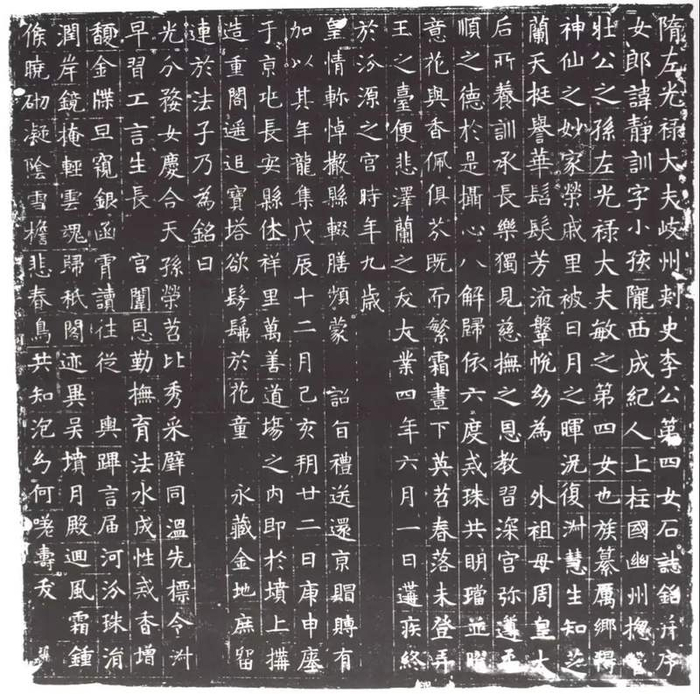 隋左光禄大夫岐州刺史李公第四女石誌銘并序
女郎諱靜訓字小孩隴西成紀人上柱國幽州摠管
壯公之孫左光禄大夫敏之第四女也族纂厲鄉得
神仙之妙家榮戚里被日月之暉況復淑慧生知芝
蘭天挺譽華髫髮芳流鞶帨幼為 外祖母周皇太
后所養訓承長樂獨見慈撫之恩教習深宮弥遵柔
順之德於是攝心八解歸依六度戒珠共明璫並曜
意花與香佩俱芬既而繁霜晝下英苕春落未登弄
玉之臺便悲澤蘭之夭大業四年六月一日遘疾終
於汾源之宮時年九歲
皇情軫悼撤縣輟膳頻蒙 詔旨禮送還京賵賻有
加以其年龍集戊辰十二月己亥朔廿二日庚申瘞
于京兆長安縣休祥里萬善道場之內即於墳上構
造重閣遥追寶塔欲髣髴於花童 永藏金地庶留
連於法子乃為銘曰
光分婺女慶合天孫榮苕比秀采璧同溫先標令淑
早習工言生長 宮闈恩勤撫育法水成性戒香增
馥金牒旦窺銀函霄讀往從 輿蹕言屆河汾珠涓
潤岸鏡掩輕雲魂歸祇閣迹異吳墳月殿迴風霜鍾
候曉砌凝陰雪檐悲春鳥共知泡幻何嗟壽夭